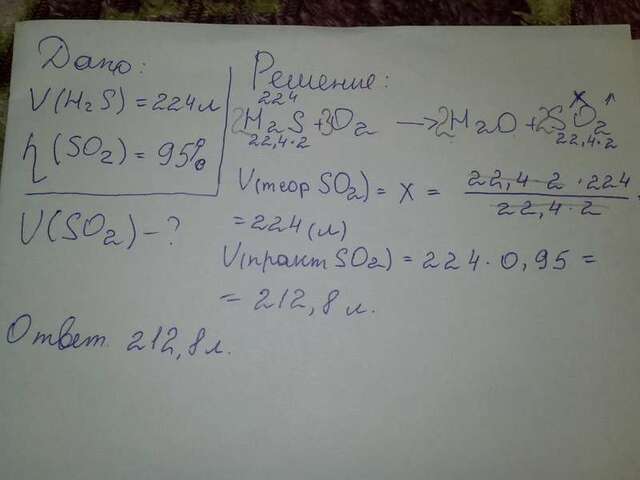 Дано:
V(H₂S) = 224 л
η (SO₂) = 95%
V(SO₂) - ?
Решение:
224 x
2H₂S + 3O₂ → 2H₂O + 2SO₂ ↑
22,4·2 22,4·2
V(теор SO₂) = x = 22,4·2·224 / 22,4·2
= 224 (л)
V(практ SO₂) = 224·0,95 =
= 212,8 л.
Ответ. 212,8 л.